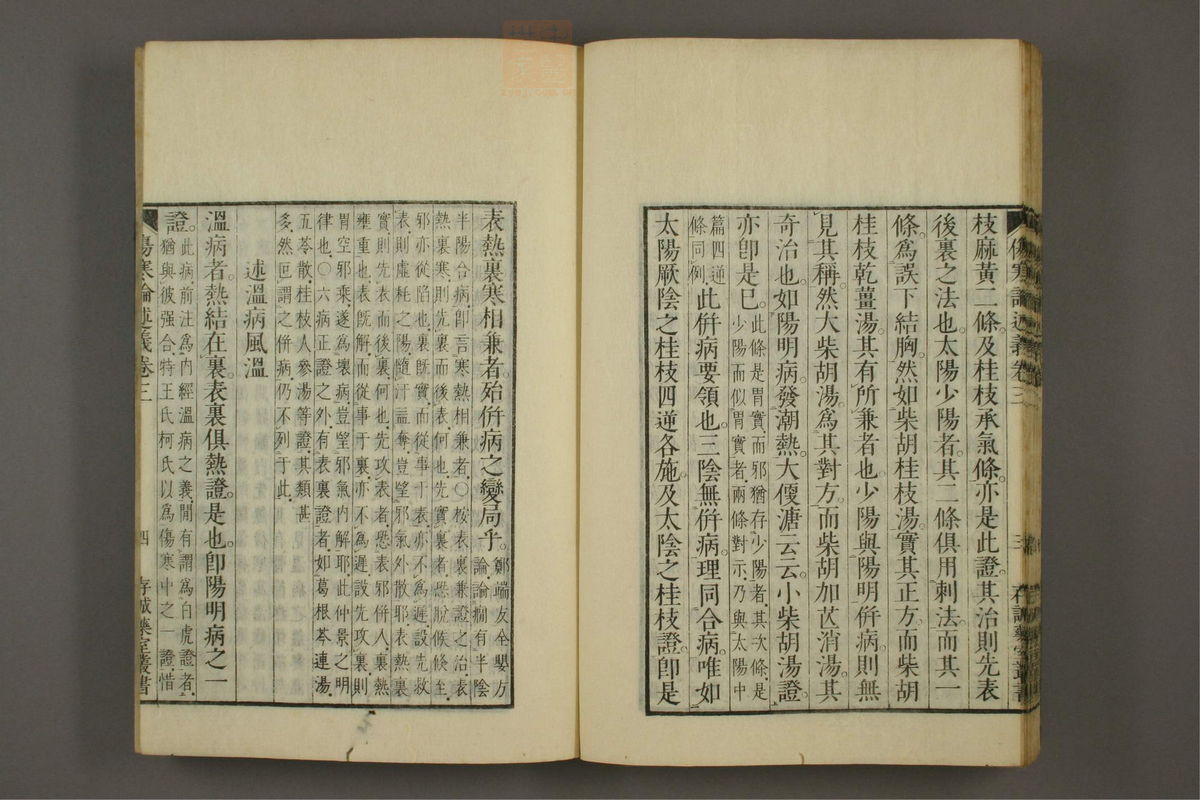 枝麻黃二條。及桂枝承氣條。亦是此證。其治則先表
後裏之法也。太陽少陽者。其二條俱用刺法。而其一
條。爲誤下結胸。然如柴胡桂枝湯。實其正方。而柴胡
桂枝乾薑湯。其有所兼者也。少陽與陽明併病。則無
見其稱。然大柴胡湯。爲其對方。而柴胡加芒消湯。其
奇治也。如陽明病。發潮熱。大便溏云云。小柴胡湯證。
亦卽是巳。此條是胃實而邪猶存少陽者。其次條。是
少陽而似胃實者。兩條對示。乃與太陽中
篇四逆
條同例。此併病要領也。三陰無併病。理同合病。唯如
太陽厥陰之桂枝四逆各施。及太陰之桂枝證。卽是
傷寒論述義卷三 三 存誠藥室叢書
表熱裏寒相兼者。殆併病之變局乎。鄭端友全嬰方
論。論癇有半陰
半陽合病。卽言寒熱相兼者。○桉表裏兼證之治。表
熱裏寒。則先裏而後表。何也。先實裏者。恐脫候倐至。
邪亦從陷也。裏旣實而從事于表。亦不爲遲。設先救
表。則虛秏之陽。隨汗益奪。豈望邪氣外散耶。表熱裏
實。則先表而後裏。何也。先攻表者。恐表邪併入。裏熱
壅重也。表旣解而從事于裏。亦不爲遲。設先攻裏。則
胃空邪乘。遂爲壞病。豈望邪氣內解耶。此仲景之明
律也。○六病正證之外。有表裏證者。如葛根芩連湯。
五苓散。桂枝人參湯等證。其類甚
多。然叵謂之併病。仍不列于此。
述溫病風溫
溫病者。熱結在裏。表裏俱熱證。是也。卽陽明病之一
證。此病前注爲內經溫病之義。閒有謂爲白虎證者。
猶與彼强合。特王氏柯氏以爲傷寒中之一證。惜
傷寒論述義卷三 四 存誠藥室叢書